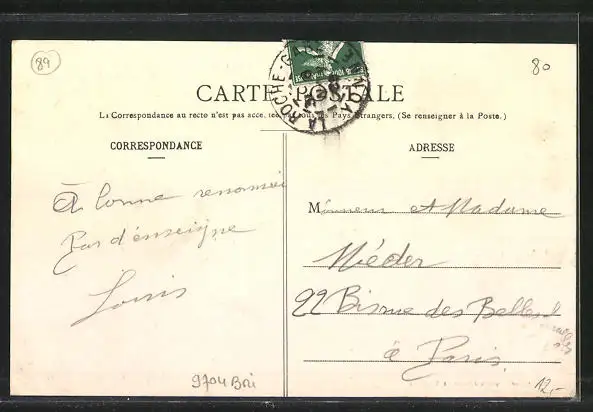 89
80
LA ROCHE-GARE
CARTE POSTALE
La Correspondance au recto n'est pas acceptée par tous les Pays Étrangers. (Se renseigner à la Poste.)
CORRESPONDANCE
ADRESSE
À bonne renommée
Pas d'enseigne
Louis
Monsieur et Madame
Niéder
22 Bis rue des Belles
à Paris
9704 Bri
12,-